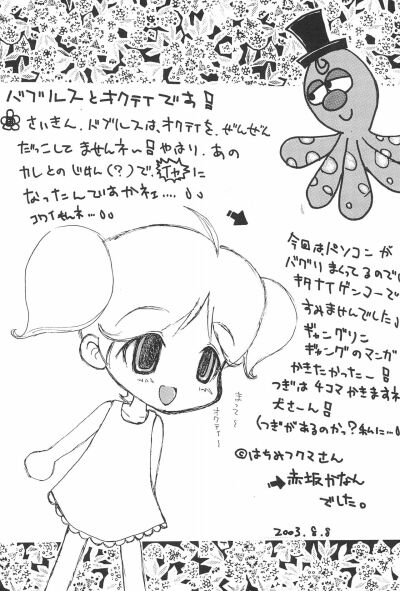 バブルスとオクティです!!
さいきん、バブルスは、オクティを、ぜんぜん
だっこしてませんネ〜!!やはり、あの
カレとのじけん(?)で、イヤに
なったんですかネェ....、、
コワイもんネ...、、
今回はパソコンが
バグりまくってるので
キタナイゲンコーで
すみませんでした、
ギャングリン
ギャングのマンガ
かきたかったー!!
つぎは4コマかきますネ
犬さーん!!
(つぎがあるのかっ?私に...
©はちみつクマさん
➡赤坂かなん
でした。
2003.8.8
まって〜
オクティ〜